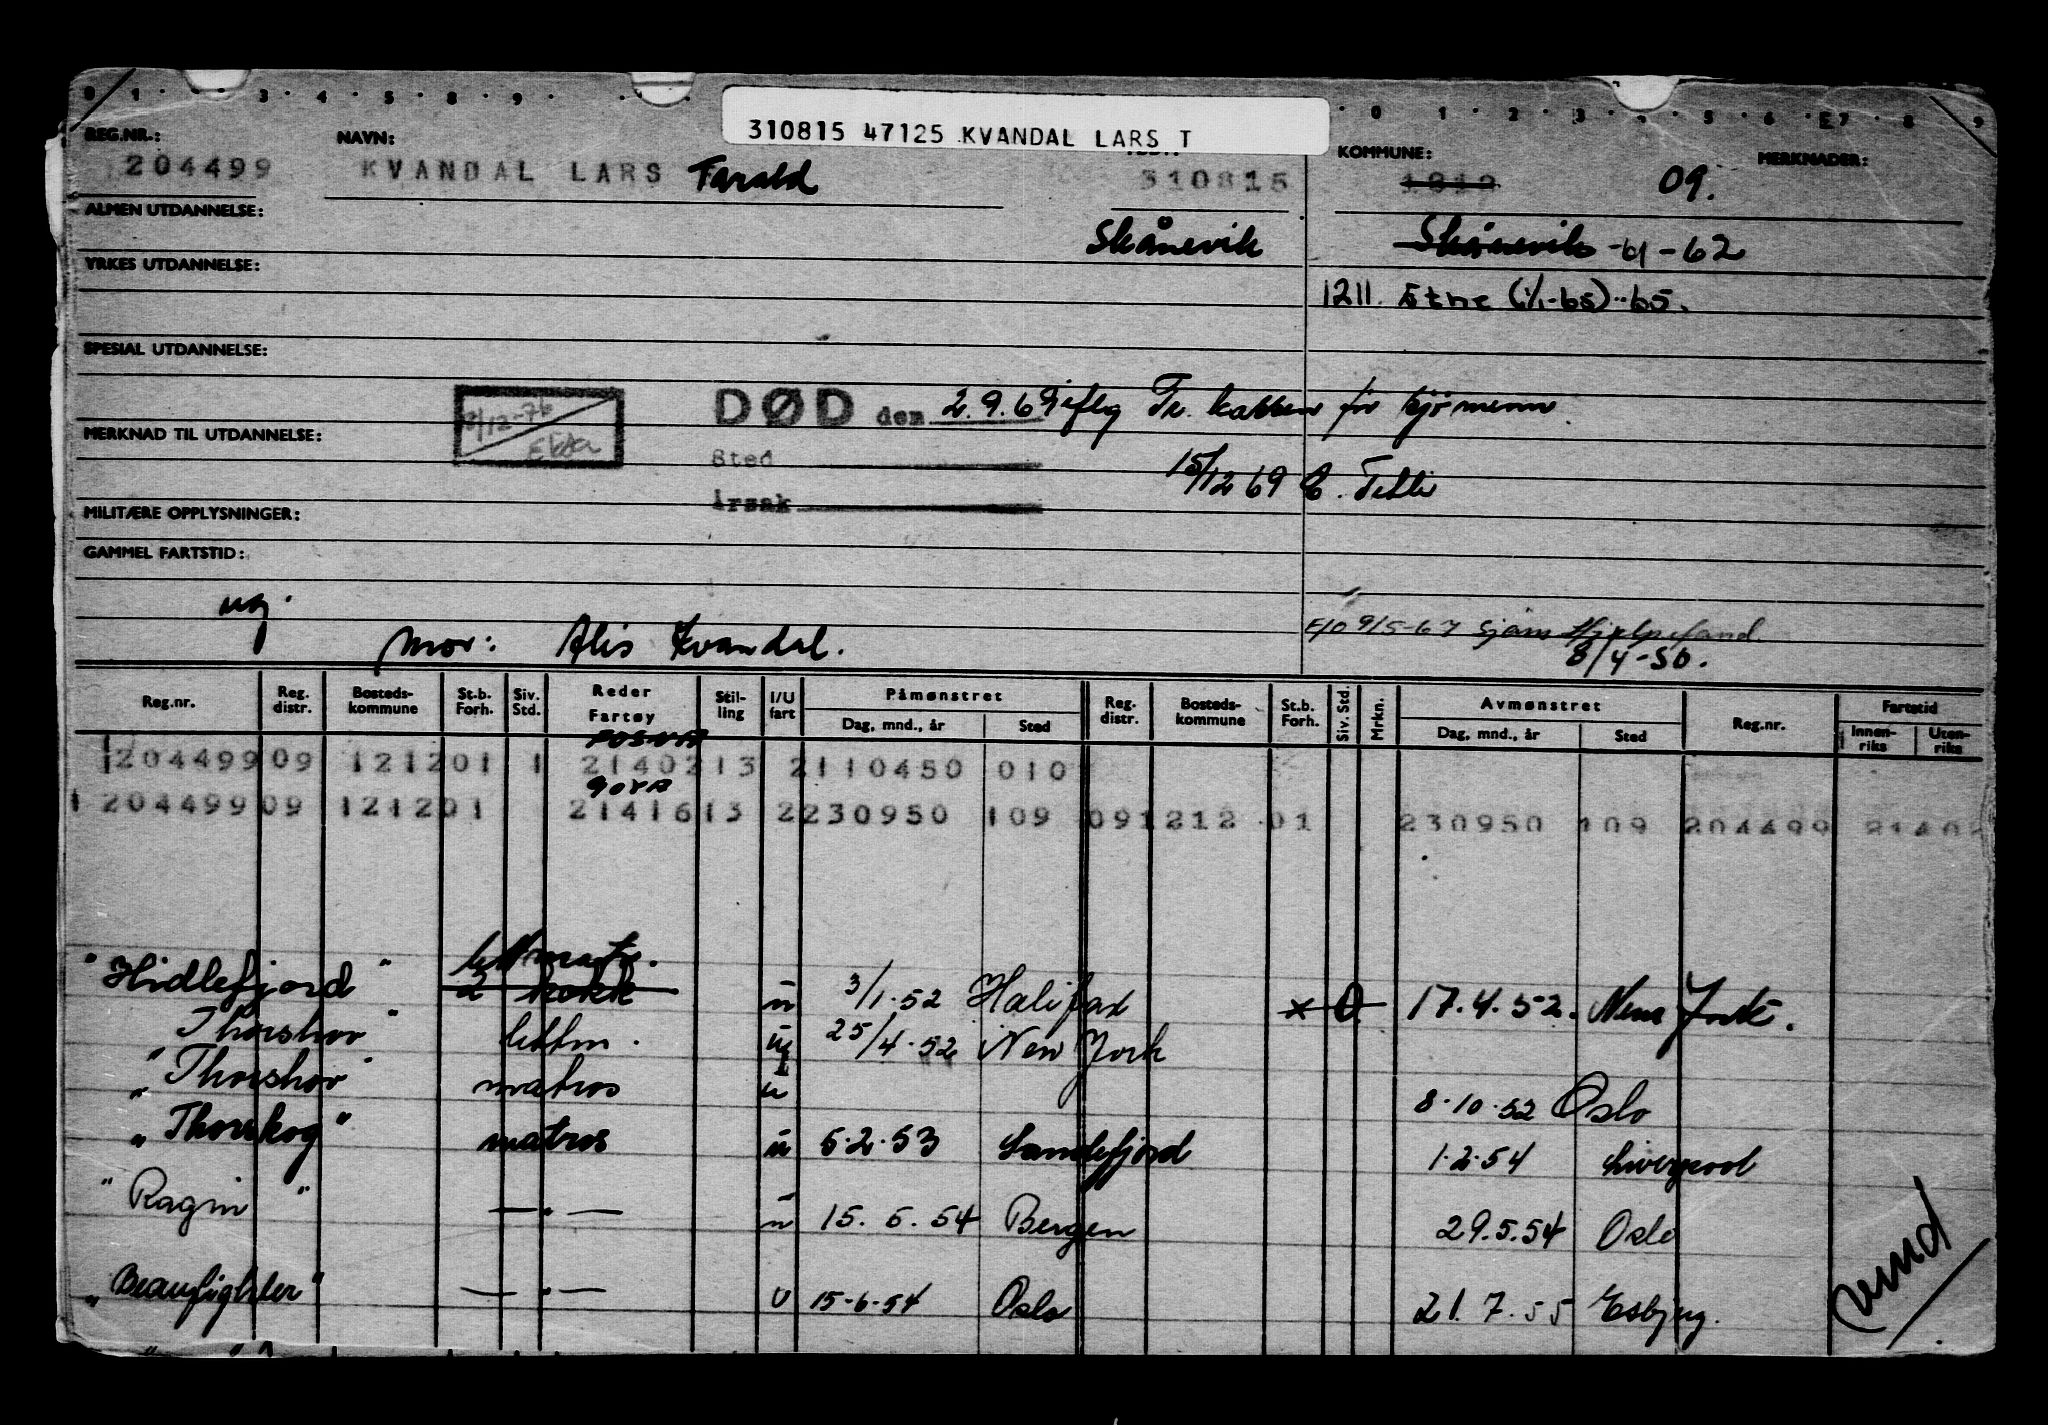 0 1 · 3 · 4 · 5 · 8 · 9 · · 0 1 · 2 · 3 · 5 · 6 · E7 8 9
310815 47125 KVANDAL LARS T
REG.NR.: NAVN: KOMMUNE: MERKNADER:
204499 KVANDAL LARS Farald 310815 1212 09.
ALMEN UTDANNELSE: Skånevik Skånevik -61-62
YRKES UTDANNELSE:
1211. Etne (1/1-65)-65.
SPESIAL UTDANNELSE:
DØD den 2.9.69 iflg Tr. for sjømenn
8/12-76
MERKNAD TIL UTDANNELSE:
Sted 15/12 69
Årsak
MILITÆRE OPPLYSNINGER:
GAMMEL FARTSTID:
ugj. E/O 9/5-67 Sjøm Hjelpefond
mor: Alis Kvandal. 8/4-50.
Reg.nr. Reg. distr. Bosteds-kommune St.b. Forh. Siv. Std. Reder Fartøy Stil-ling I/U fart Påmønstret Dag, mnd., år Sted Reg. distr. Bosteds-kommune St.b. Forh. Siv. Std. Mrkn. Avmønstret Dag, mnd., år Sted Reg.nr. Fartstid Innen-riks Uten-riks
1204499 09 1212 01 1 21402 13 2 110450 010
1 204499 09 1212 01 21416 13 2 230950 109 09 1212 01 230950 109 204499 21402
lettmatr.
"Hidlefjord" 2 kokk u 3/1.52 Halifax x 0 17.4.52. New York.
"Thorshov" lettm. u 25/4.52 New York
"Thorshov" matros u 8.10.52 Oslo
"Thorskog" matros u 5.2.53 Sandefjord 1.2.54 Liverpool
"Ragni" —.— u 15.5.54 Bergen 29.5.54 Oslo
"Beaufighter" —.— u 15.6.54 Oslo 21.7.55 Esbjerg.
vend